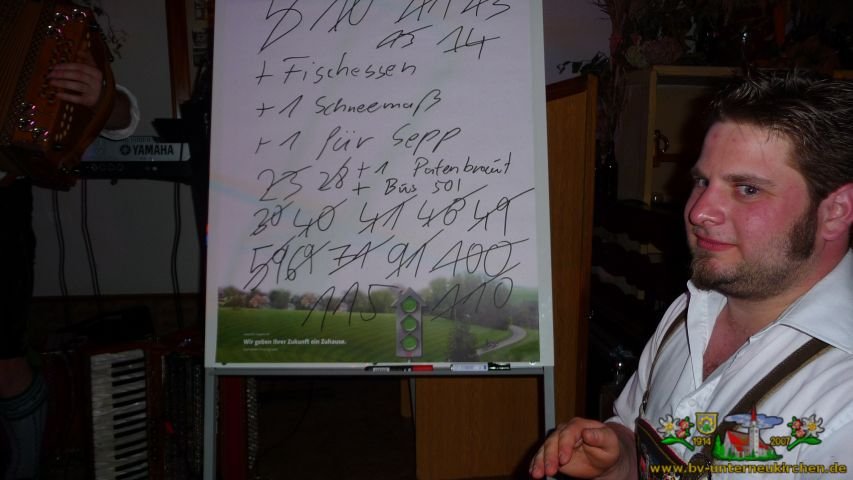 5 10 41 43
13 14
+ Fischessen
+ 1 Schneemaß
+ 1 für Sepp
25 28 + 1 Patenbraut
+ Bus 50l
30 40 41 46 49
59 69 71 91 100
115 110
Wir geben Ihrer Zukunft ein Zuhause.
YAMAHA
1914 2007
www.bv-unterneukirchen.de